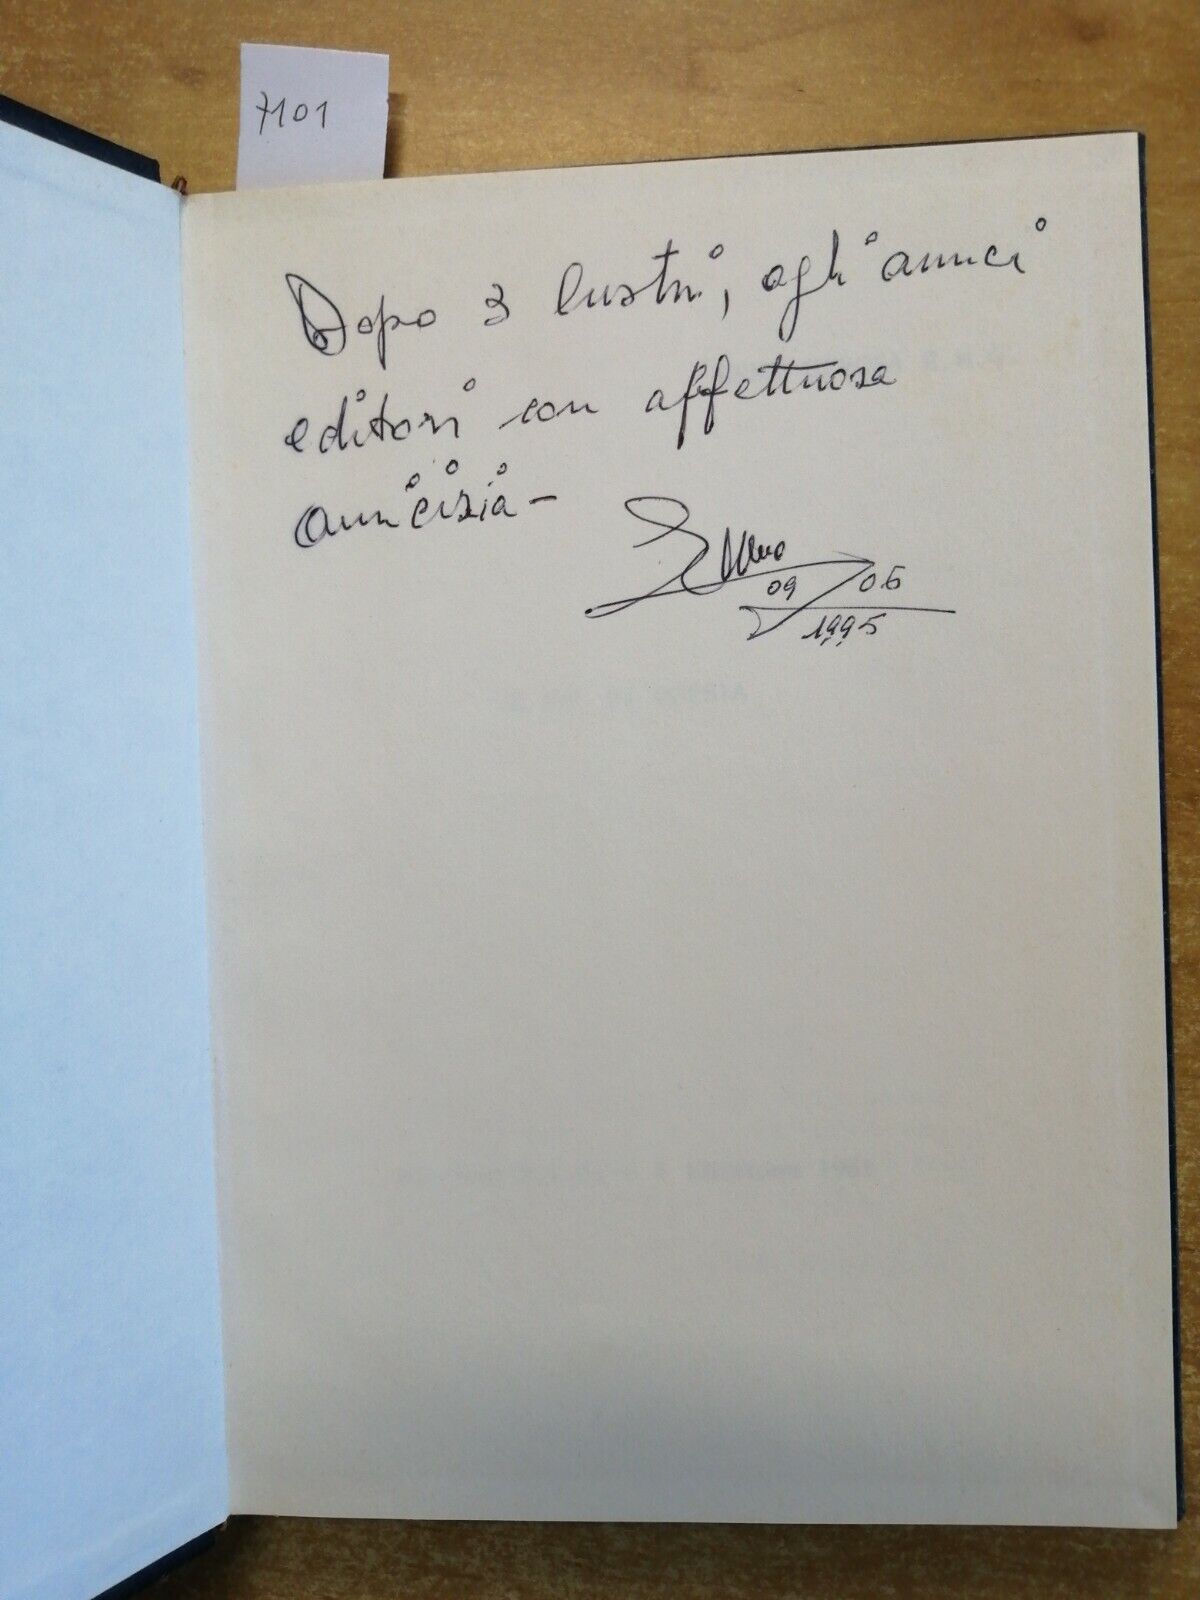 7101
Dopo 3 lustri, agli amici
editori con affettuosa
amicizia-
09 06
1995